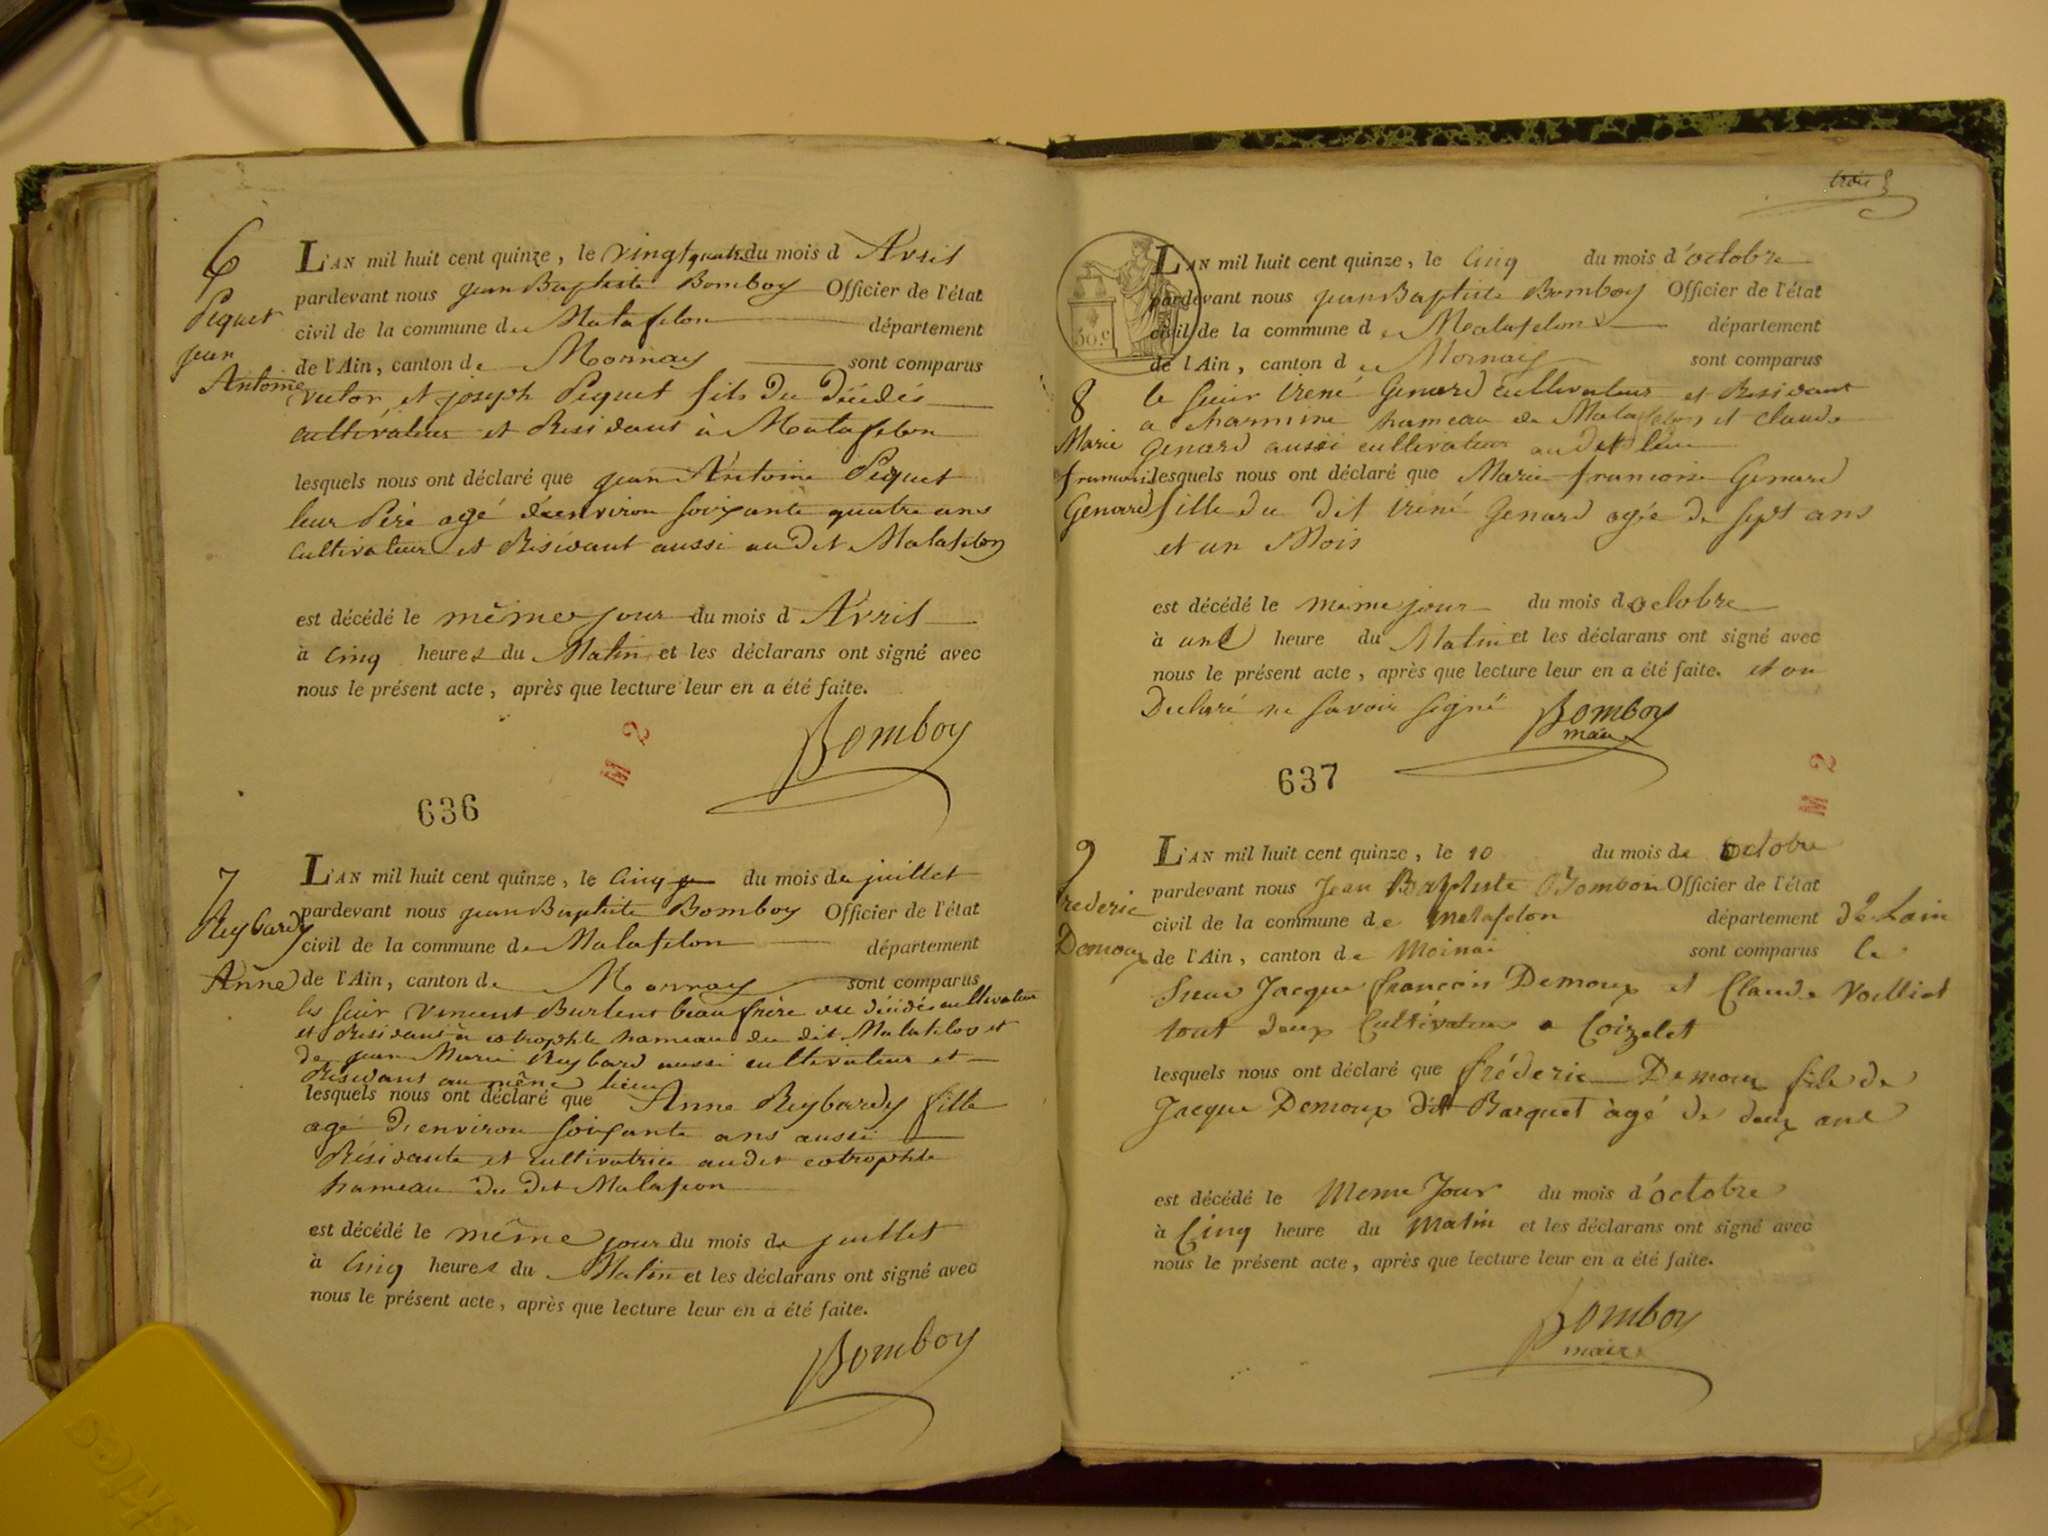 6
Piquet
jean
Antoine
L'AN mil huit cent quinze, le vingt quatre du mois d Avril
pardevant nous jean Baptiste Bomboy Officier de l'état
civil de la commune de Matafelon département
de l'Ain, canton de Mornay sont comparus
victor et joseph Piquet fils du décédés
cultivateur et Residant à Matafelon
lesquels nous ont déclaré que jean Antoine Piquet
leur Péré agé d'environ soixante quatre ans
cultivateur et Résidant aussi au dit Matafelon
est décédé le même jour du mois d Avril
à cinq heures du Matin et les déclarans ont signé avec
nous le présent acte, après que lecture leur en a été faite.
Bomboy
M 2
636
7
Reybard
Anne
L'AN mil huit cent quinze, le cinq du mois de juillet
pardevant nous jean Baptiste Bomboy Officier de l'état
civil de la commune de Matafelon département
de l'Ain, canton de Mornay sont comparus
les sieur vincent Burlent beau frère du décédé cultivateur
et Residant à cotrophte hameau du dit Matafelon et
de jean Marie Reybard aussi cultivateur et
Residant au même lieu
lesquels nous ont déclaré que Anne Reybardy fille
agé d'environ soixante ans aussi
Résidante et cultivatrice au dit cotrophte
hameau du dit Matafelon
est décédé le même jour du mois de juillet
à cinq heures du Matin et les déclarans ont signé avec
nous le présent acte, après que lecture leur en a été faite.
Bomboy
trois 3
50.c
8
Marie
francoise
Genard
L'AN mil huit cent quinze, le cinq du mois d'octobre
pardevant nous jean Baptiste Bomboy Officier de l'état
civil de la commune de Matafelon département
de l'Ain, canton de Mornay sont comparus
le sieur irené Genard cultivateur et Residant
a charmine hameau de Matafelon et claude
Genard aussi cultivateur au dit lieu
lesquels nous ont déclaré que Marie francoise Genard
fille du dit irené Genard agée de sept ans
et un Mois
est décédé le même jour du mois d octobre
à une heure du Matin et les déclarans ont signé avec
nous le présent acte, après que lecture leur en a été faite. et on
Declaré ne savoir signé Bomboy
maire
637
M 2
9
frederic
Demoux
L'AN mil huit cent quinze, le 10 du mois de octobre
pardevant nous Jean Baptiste Bomboi Officier de l'état
civil de la commune de matafelon département de Lain
de l'Ain, canton de Moinai sont comparus le
Sieur Jacque françois Demoux et Claude Volliat
tout deux Cultivateur a Coizelet
lesquels nous ont déclaré que fréderic Demoux fils de
Jacque Demoux dit Barquet àgé de deux ans
est décédé le meme Jour du mois d'octobre
à Cinq heure du matin et les déclarans ont signé avec
nous le présent acte, après que lecture leur en a été faite.
Bomboy
maire